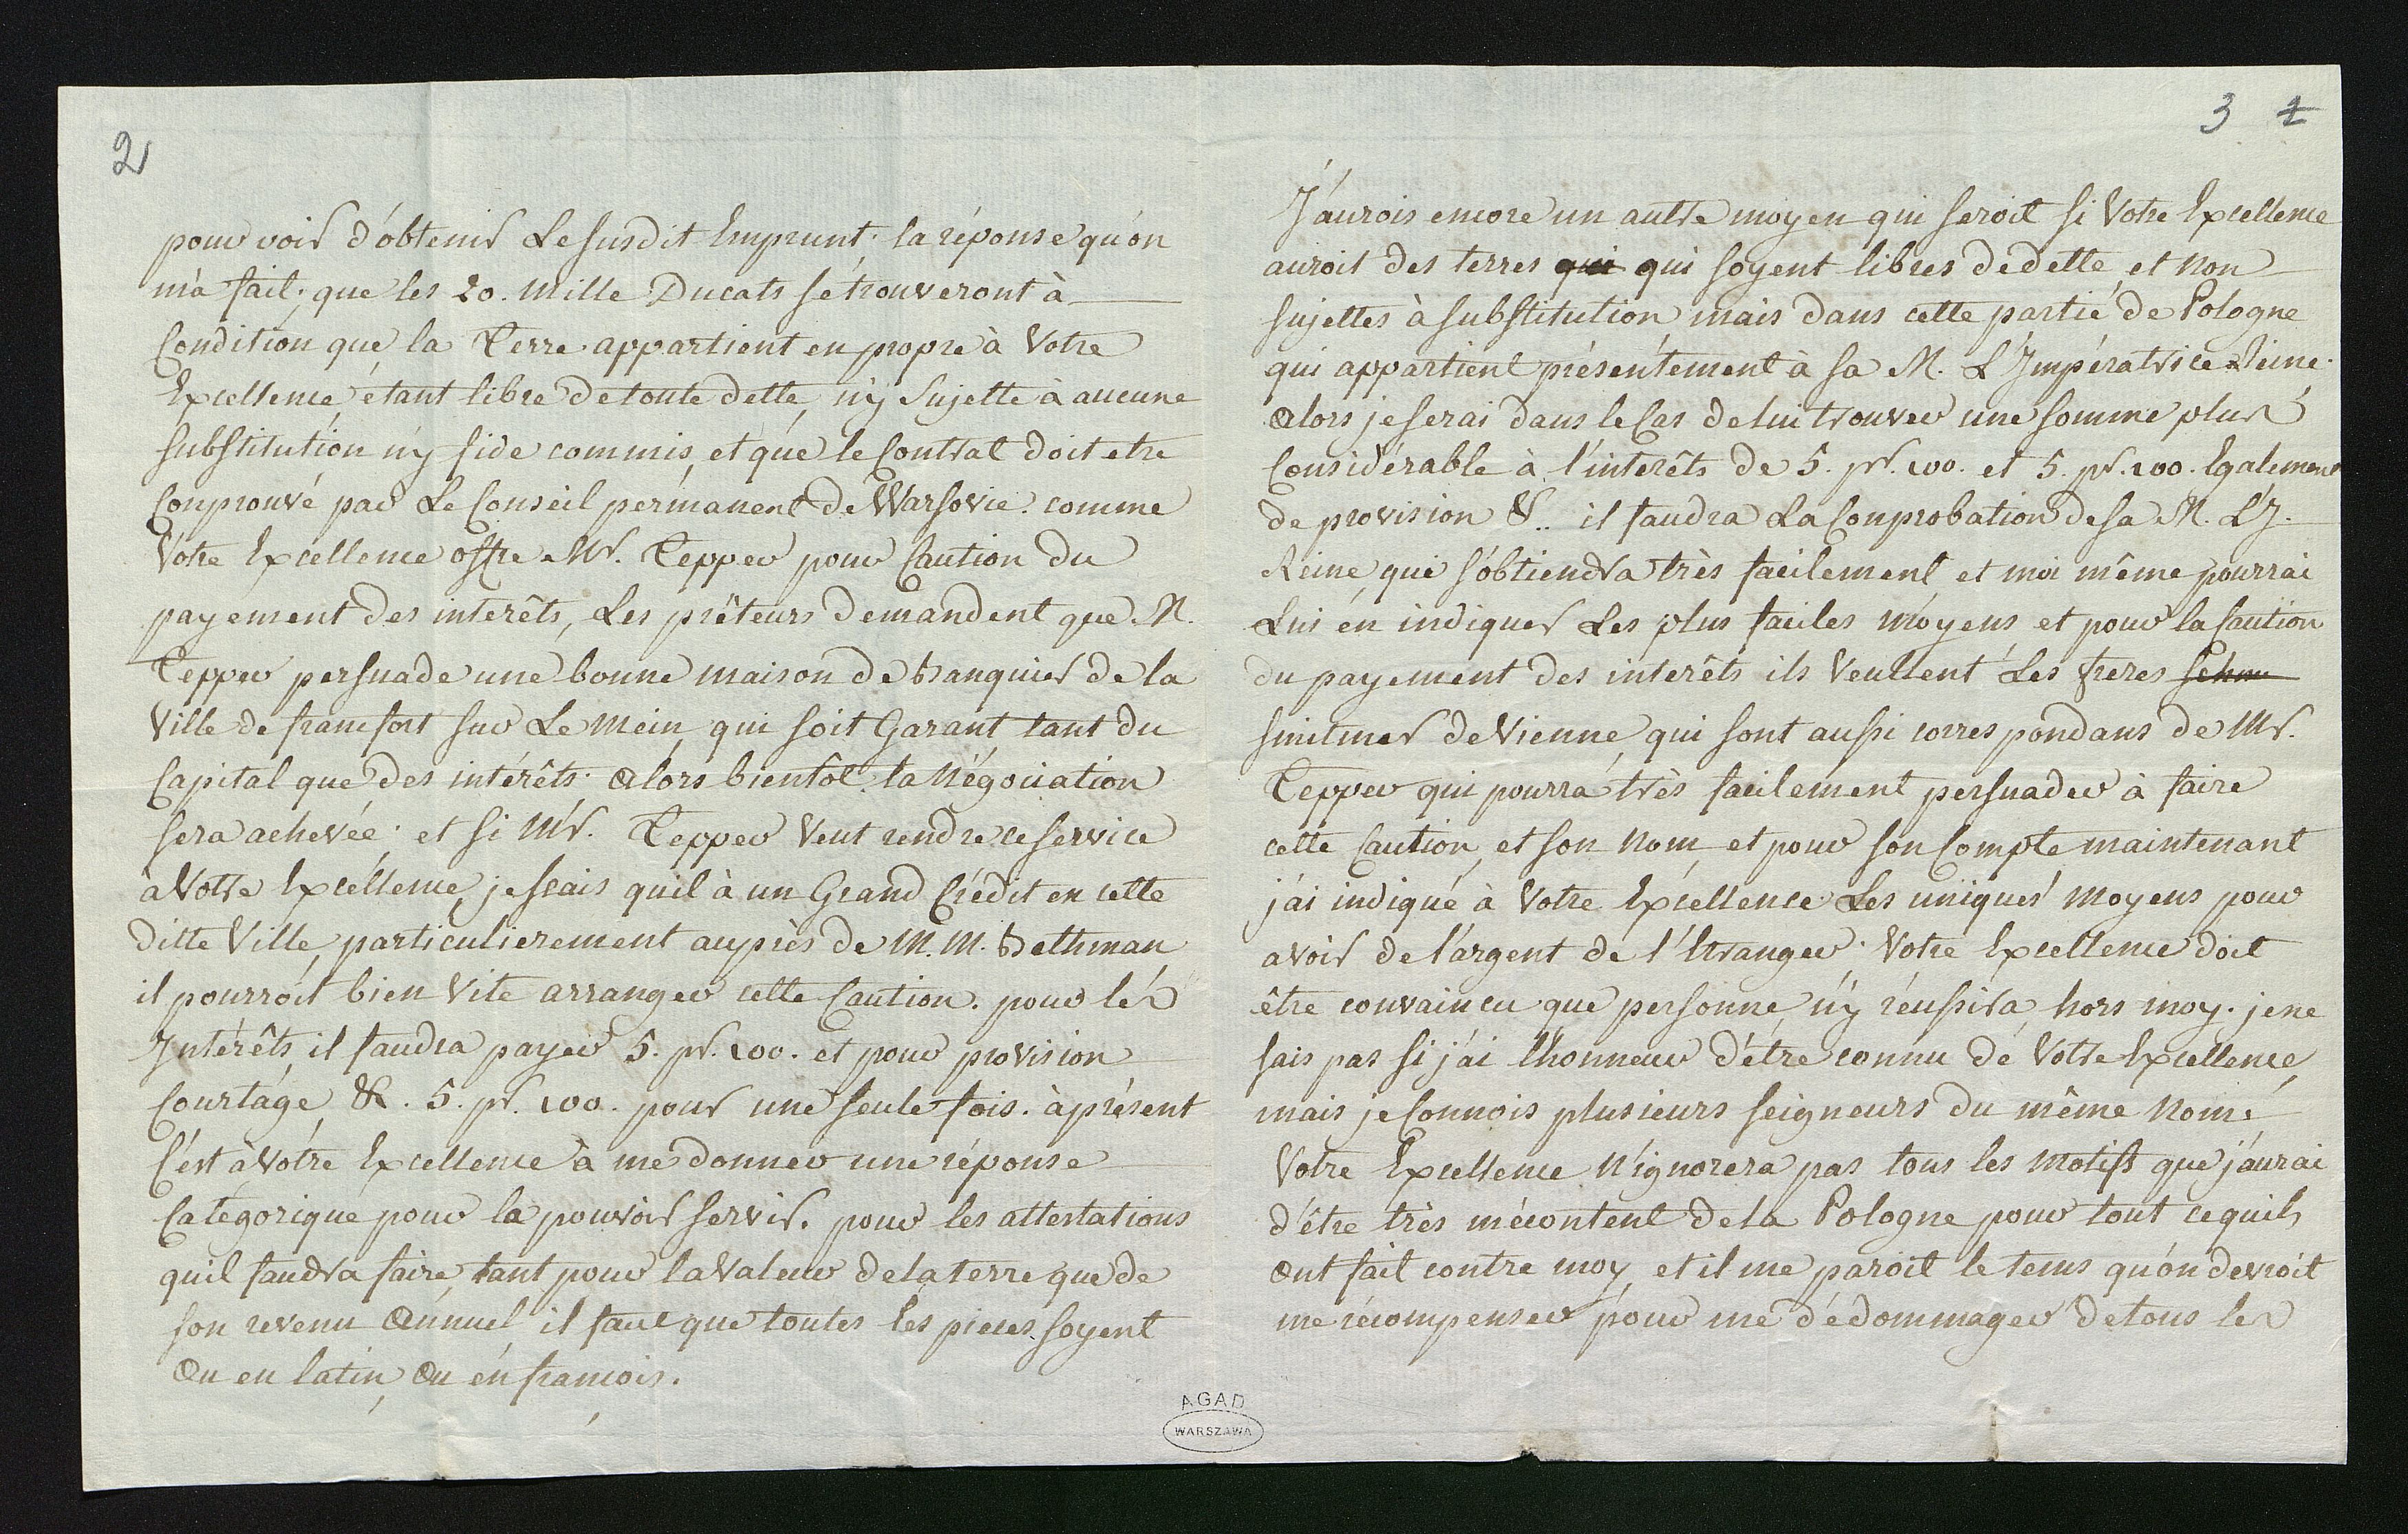 2
pour voir d'obtenir Le susdit Emprunt. la réponse qu'on
m'a fait; que les 20. mille Ducats se trouveront à
Condition que la Terre appartient en propre à Votre
Excellence, étant libre de toute dette, n'y Sujette à aucune
substitution n'y fide commis, et que le Contrat doit etre
Conprouvé par Le Conseil permanent de Warsovie. comme
Votre Excellence offre Mr. Tepper pour Caution du
payement des interêts, Les prêteurs demandent que M.
Tepper persuade une bonne maison de banquier de la
Ville de francfort sur Le mein, qui soit Garant tant du
Capital que des intérêts. alors bientôt la Négociation
sera achevée; et si Mr. Tepper veut rendre ce service
à Votre Excellence, je sçais quil à un Grand Crédit en cette
ditte Ville, particulierement auprès de M.M. Bethman
il pourroit bien Vite arranger cette Caution. pour les
Intérêts, il faudra payer 5. pr. 100. et pour provision
Courtage &. 5. pr. 100. pour une seule fois. à présent
C'est à Votre Excellence à me donner une réponse
Catégorique pour la pouvoir servir. pour les attestations
quil faudra faire, tant pour la Valeur de la terre que de
son revenu Annuel, il faut que toutes les pieces soyent
Ou en latin, Ou en francois.
3 1
J'aurois encore un autre moyen qui seroit si Votre Excellence
auroit des terres qui qui soyent libres de dette, et non
sujettes à substitution, mais dans cette partie de Pologne
qui appartient présentement à sa M. L'Impératrice Reine.
Alors je serai dans le Cas de lui trouver une somme plus
Considérable à l'interêts de 5. pr. 100. et 5. pr. 100. Egalement
de provision &.. il faudra La Conprobation de sa M. L'I.
Reine, qui s'obtiendra très facilement, et moi même pourrai
Lui en indiquer Les plus faciles moyens et pour la Caution
du payement des interêts ils veullent Les freres
smitmer de Vienne, qui sont aussi correspondans de Mr.
Tepper qui pourra très facilement persuader à faire
cette Caution, et son nom, et pour son Compte maintenant
j'ai indiqué à Votre Excellence Les uniques moyens pour
avoir de l'argent de l'Etranger. Votre Excellence doit
être convaincu que personne n'y réussira hors moy. je ne
sais pas si j'ai l'honneur d'être connu de Votre Excellence,
mais je Connois plusieurs seigneurs du même Nom.
Votre Excellence N'ignorera pas tous les Motifs que j'aurai
d'être très mécontent de la Pologne pour tout ce quils
Ont fait contre moy, et il me paroit le tems qu'on devroit
me récompenser pour me dédommager de tous les
AGAD
WARSZAWA